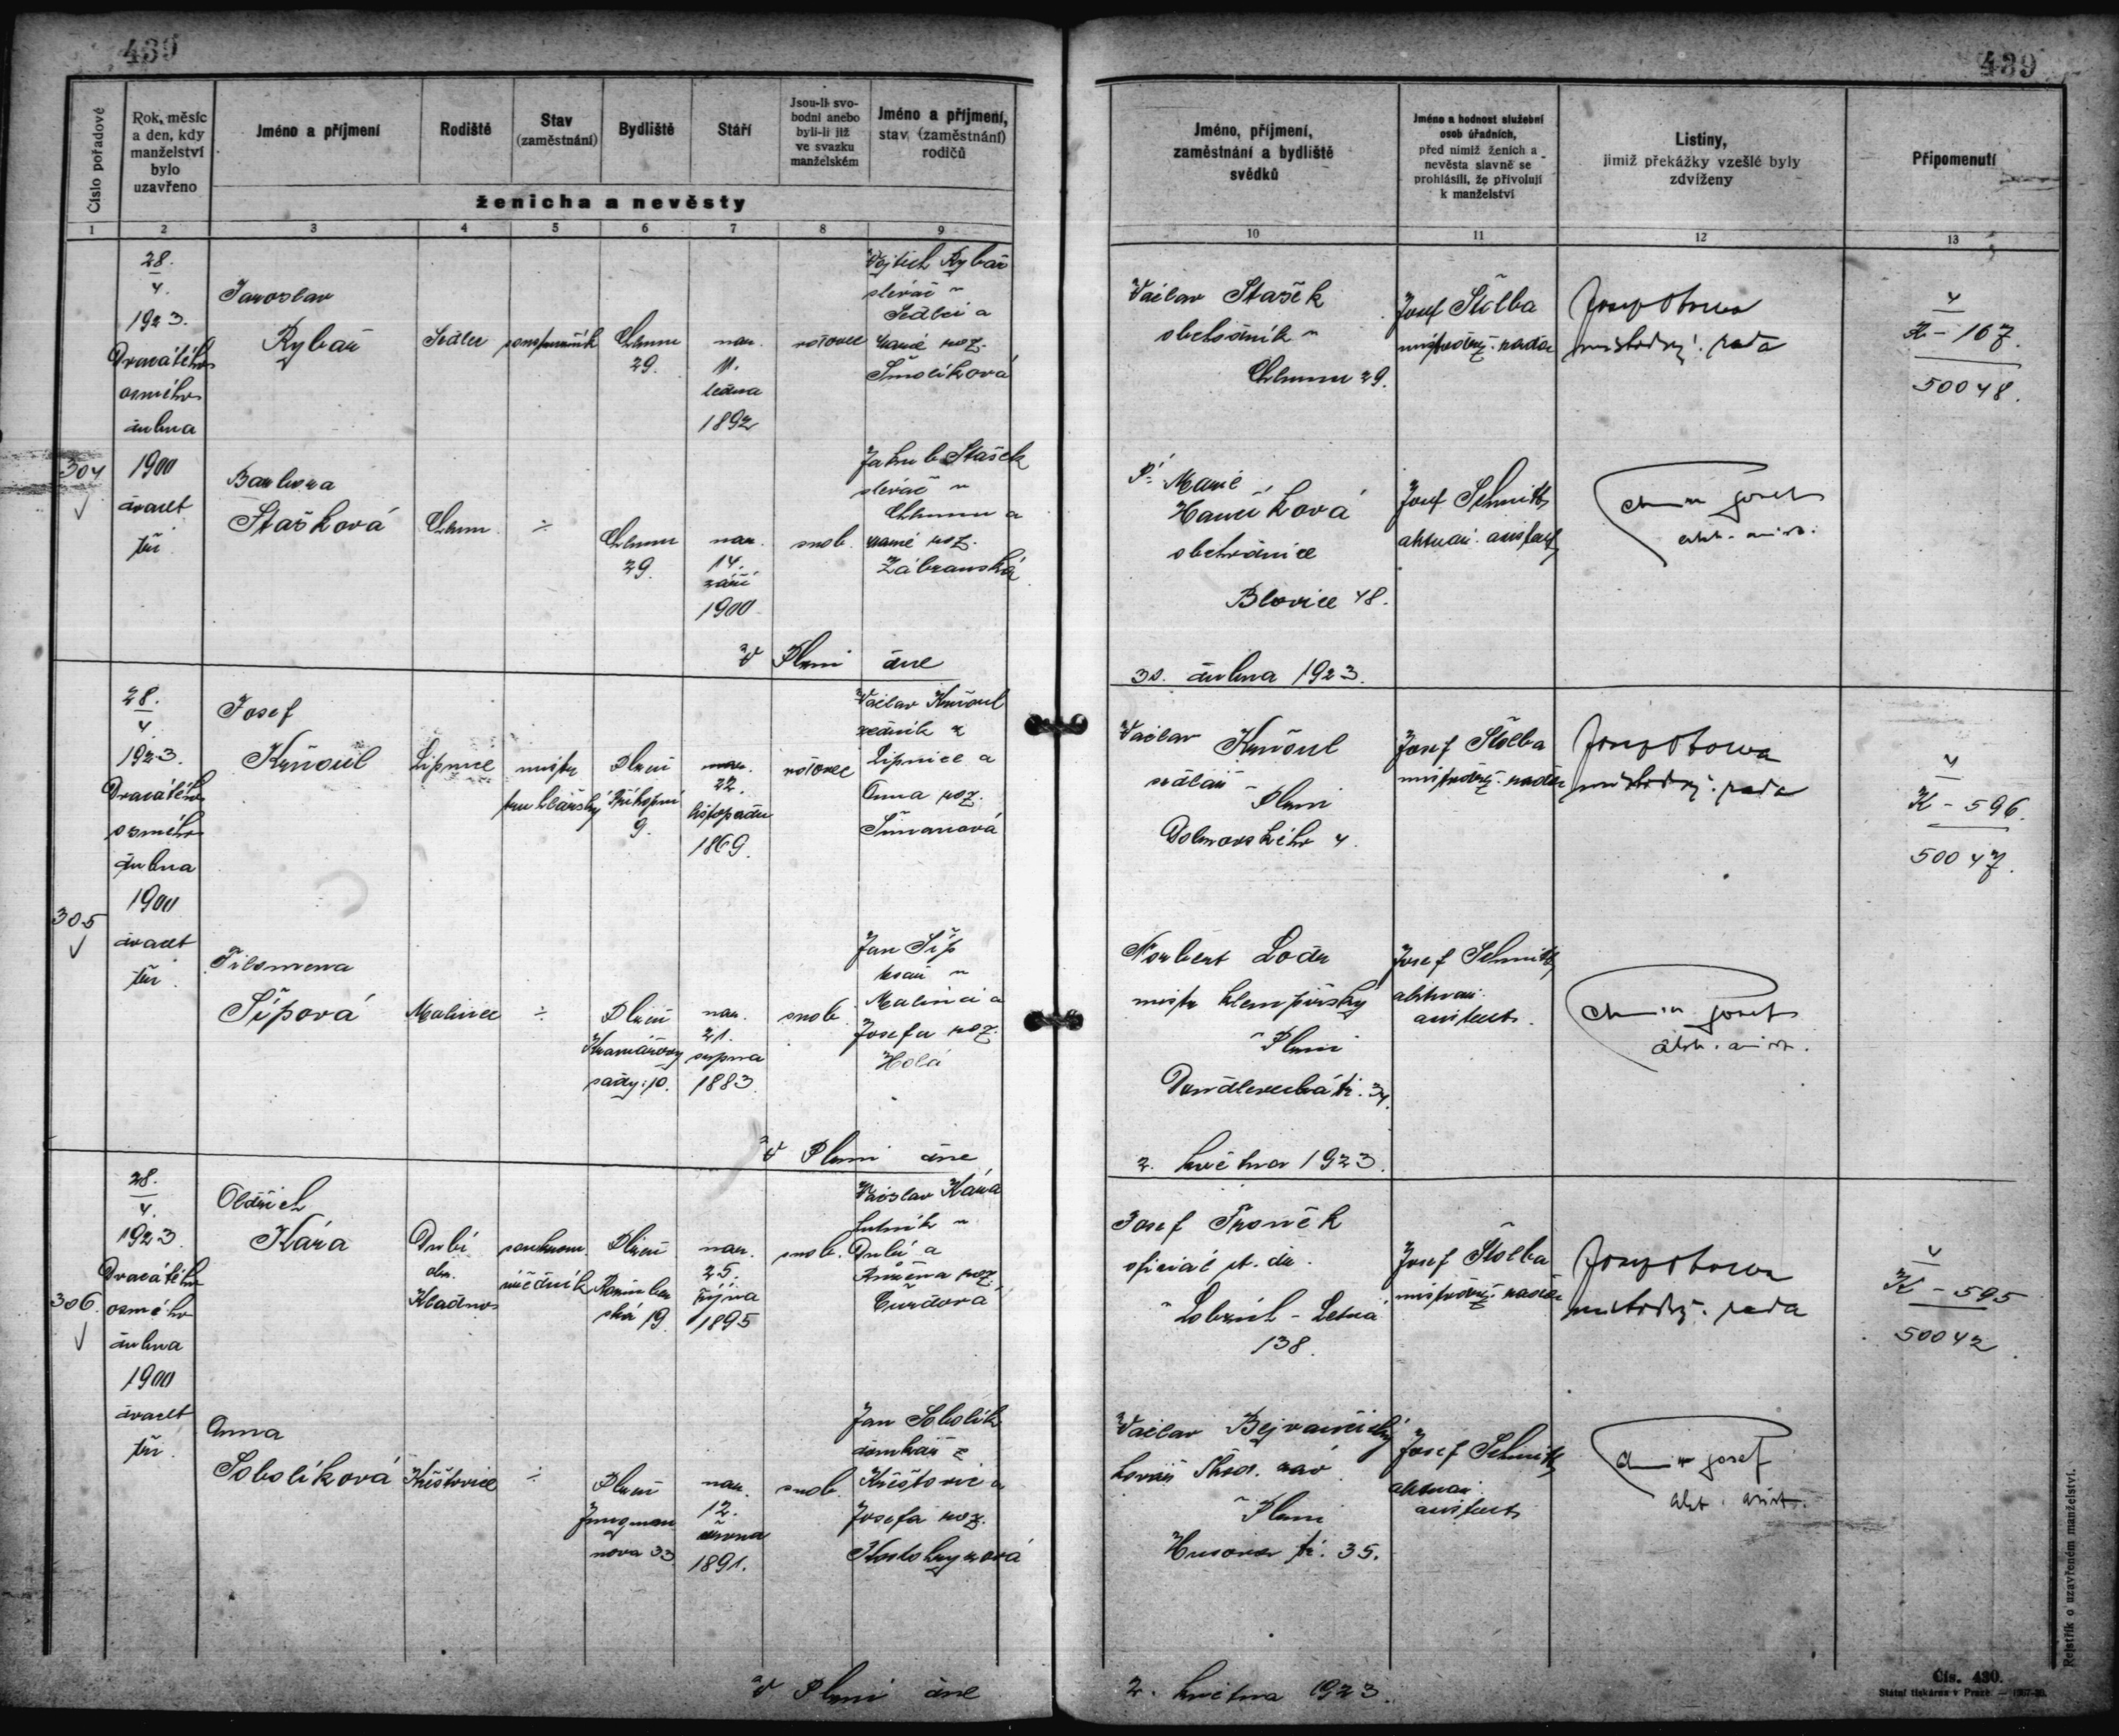 439
439
Číslo pořadové
Rok, měsíc
a den, kdy
manželství
bylo
uzavřeno
Jméno a příjmení
Rodiště
Stav
(zaměstnání)
Bydliště
Stáří
Jsou-li svo-
bodni anebo
byli-li již
ve svazku
manželském
Jméno a příjmení,
stav (zaměstnání)
rodičů
ženicha a nevěsty
Jméno, příjmení,
zaměstnání a bydliště
svědků
Jméno a hodnost služební
osob úřadních,
před nimiž ženich a
nevěsta slavně se
prohlásili, že přivolují
k manželství
Listiny,
jimiž překážky vzešlé byly
zdviženy
Připomenutí
1 2 3 4 5 6 7 8 9 10 11 12 13
304
28.
4.
1923.
Dvacátého
osmého
dubna
1900
dvacet
tři
Jaroslav
Rybář
Sedlec
Chlumu
29.
nar.
11.
ledna
1892
Vojtěch Rybář
slévač v
Sedlci a
Marie roz.
Smolíková
Václav Stašek
obchodník v
Chlumu 29.
Josef Štolba
místodrž. rada
4
K - 167.
50048.
Barbora
Stašková
Chlum
÷
Chlumu
29.
nar.
14.
září
1900
svob.
Jakub Stašek
slévač v
Chlumu a
Marie roz.
Zábranská
Marie
Hančíková
obchodnice
Blovice 48.
Josef Schmitt
aktuár. assistent
V Plzni dne
30. dubna 1923.
305
28.
4.
1923.
Dvacátého
osmého
dubna
1900
dvacet
tři.
Josef
Křnoul
Lipnice
mistr
truhlářský
Plzeň
Příkopní
9.
nar.
22.
listopadu
1869.
vdovec
Václav Křnoul
zedník z
Lipnice a
Anna roz.
Šimanová
Václav Křnoul
sedlář
Plzni
Dobrovského 4.
Josef Štolba
místodrž. rada
místodrž. rada
4
K - 596.
50047.
Filomena
Šípová
Malinec
÷
Plzeň
Kramářovy
sady: 10.
nar.
21.
srpna
1883.
svob.
Jan Šíp
v
Malinci a
Josefa roz.
Holá
Norbert Loder
mistr klempířský
v Plzni
34.
Josef Schmitt
aktuár.
assistent.
V Plzni dne
2. května 1923.
306.
28.
4.
1923
Dvacátého
osmého
dubna
1900
dvacet
tři.
Oldřich
Kára
Dubí
okr.
Kladno
soukrom.
úředník
Plzeň
19
nar.
25.
října
1895
svob.
Kára
hutník v
Dubí a
Růžena roz.
Čurdová
Josef Froněk
oficiál st. dr.
v Lobzích - Letná
138.
Josef Štolba
místodrž. rada
místodrž. rada
4
K - 595
50042.
Anna
Sobolíková
Křištovice
÷
Plzeň
Jungman
nova 33
nar.
12.
února
1891.
svob.
Jan Sobolík
domkář z
Křištovic a
Josefa roz.
Kostohryzová
Václav
kovář Škod. záv.
v Plzni
Husova tř. 35.
Josef Schmitt
aktuár.
assistent
V Plzni dne
2. května 1923.
Rejstřík o uzavřeném manželství.
Čís. 430.
Státní tiskárna v Praze.